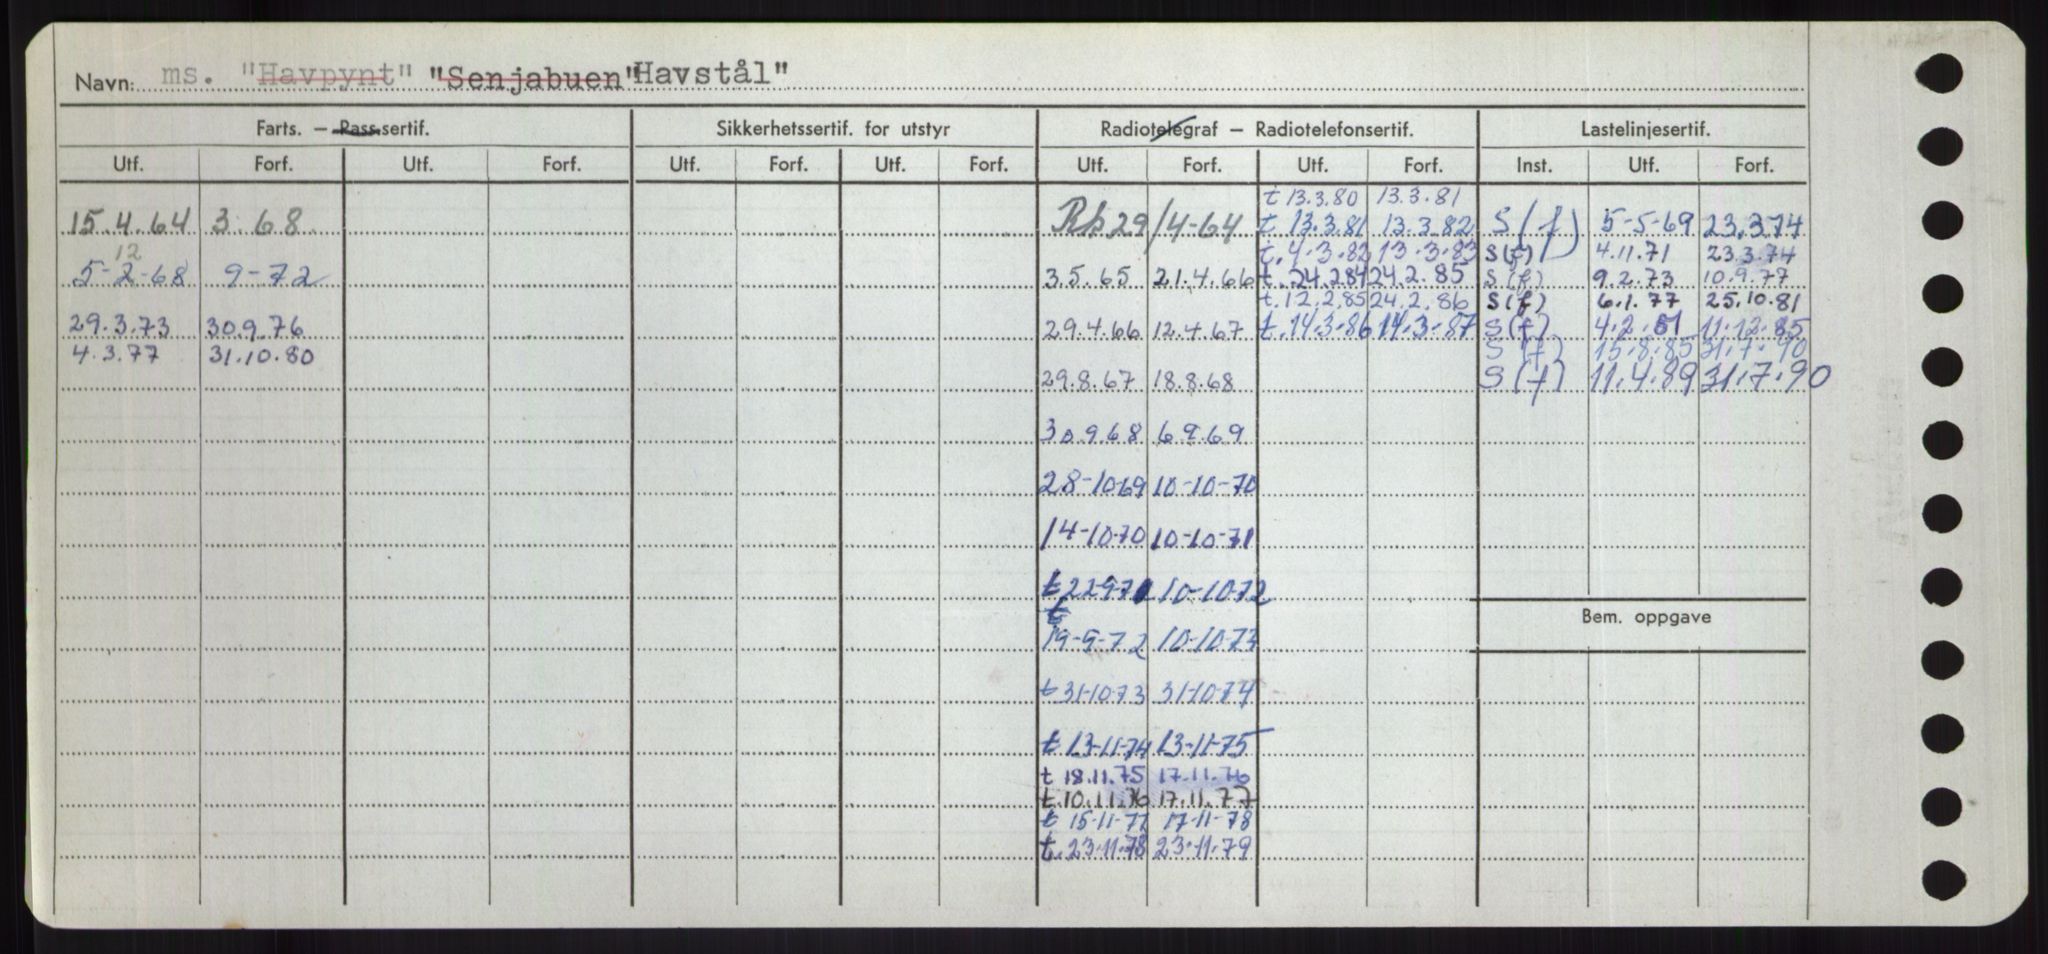 Navn: ms. "Havpynt" "Senjabuen" Havstål"
Farts. — Pass.sertif. Sikkerhetssertif. for utstyr Radiotelegraf — Radiotelefonsertif. Lastelinjesertif.
Utf. Forf. Utf. Forf. Utf. Forf. Utf. Forf. Utf. Forf. Utf. Forf. Inst. Utf. Forf.
t 13.3.80 13.3.81
15.4.64 3.68 29/4-64 t. 13.3.81 13.3.82 S(f) 5-5-69 23.3.74
12 t. 4.3.82 13.3.83 S(f) 4.11.71 23.3.74
5-2-68 9-72 3.5.65 21.4.66 t. 24.2.84 24.2.85 S(f) 9.2.73 10.9.77
t. 12.2.85 24.2.86 S(f) 6.1.77 25.10.81
29.3.73 30.9.76 29.4.66 12.4.67 t. 14.3.86 14.3.87 S(f) 4.2.81 11.12.85
4.3.77 31.10.80 S(f) 15.8.85 31.7.90
29.8.67 18.8.68 S(f) 11.4.89 31.7.90
30.9.68 6.9.69
28-10-69 10-10-70
14-10-70 10-10-71
t 22-9-71 10-10-72
t
19-9-72 10-10-73
t 31-10-73 31-10-74
t 13-11-74 13-11-75
t 18.11.75 17.11.76
t. 10.11.76 17.11.77
t 15-11-77 17-11-78
t. 23.11.78 23.11.79
Bem. oppgave